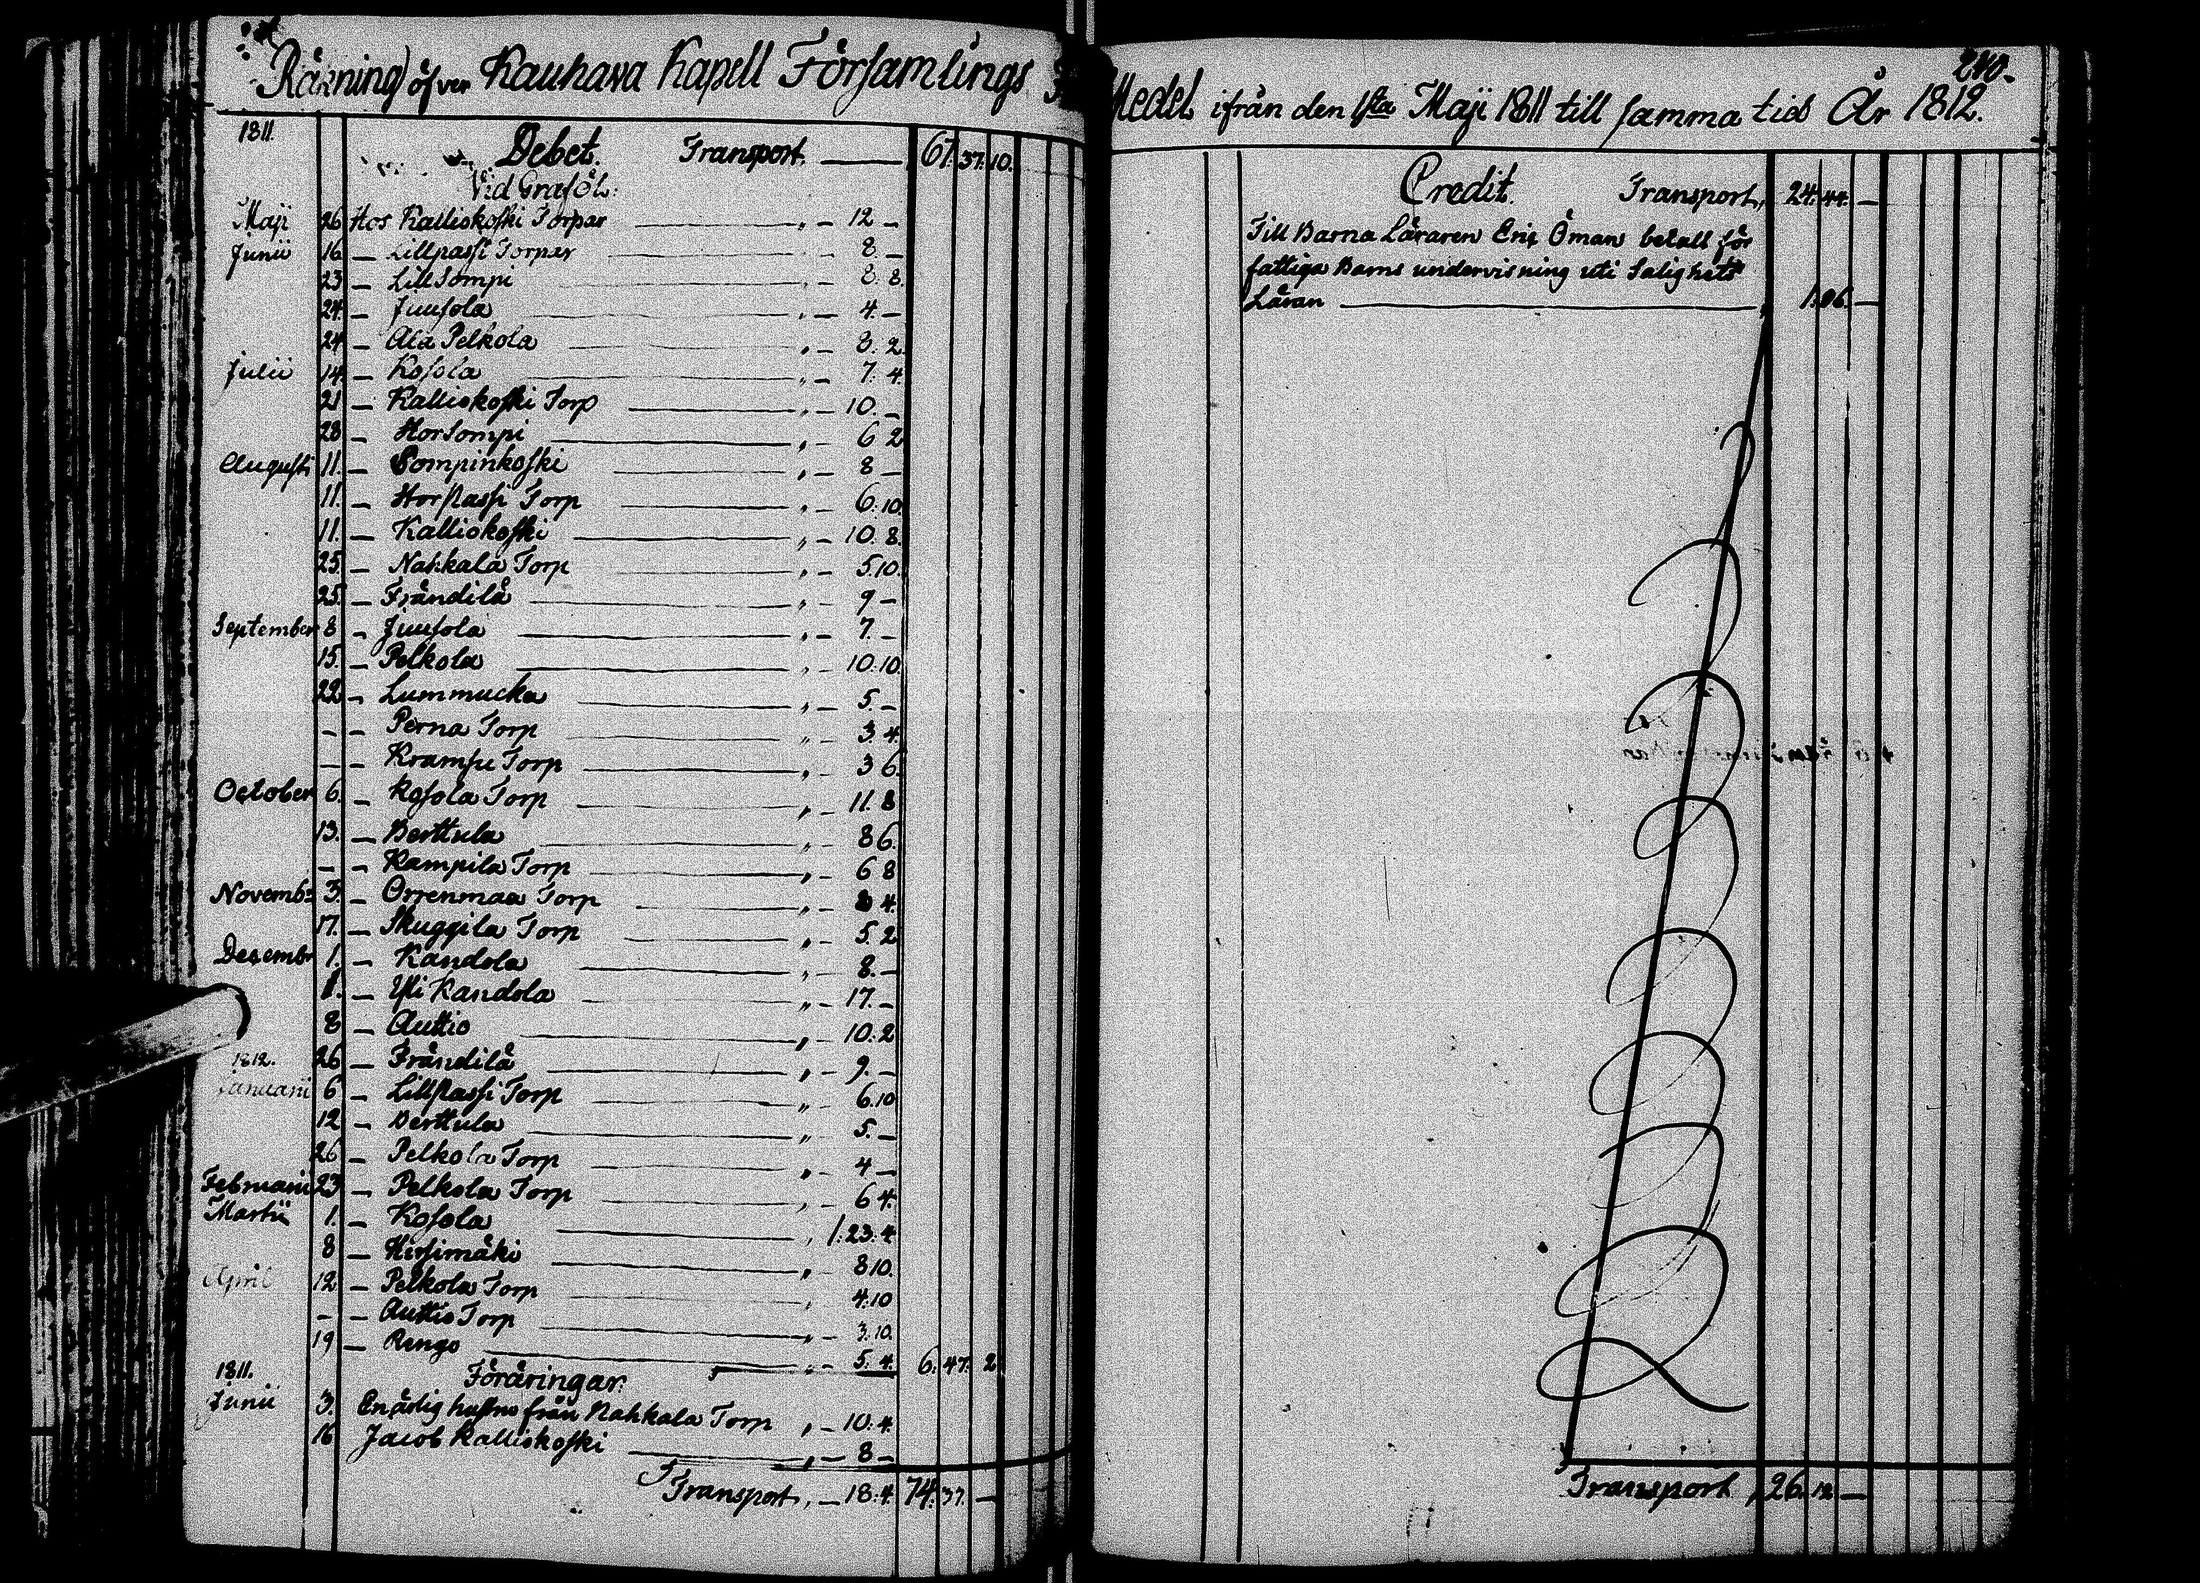 240.
Räkning öfver Kauhava Kapell Församlings Medel ifrån den 1sta Maji 1811 till samma tid År 1812.
1811. Debet. Transport. 67. 37. 10.
Vid Graföl:
Maji 26 Hos Kalliokoski Torpar „ - 12 -
Junii 16 - Lillpassi Torpar - 8. -
23 - Lill Sompi „ - 8. 8.
24 - Juusola „ - 4. -
24 - Ala Pelkola „ - 8. 2
Julii 14 - Kosola „ - 7. 4
21 - Kalliokoski Torp „ - 10. -
28 - Hor Sompi „ - 6 2
Augusti 11. - Sompinkoski „ - 8 -
11. - Hor Passi Torp „ - 6. 10
11. - Kalliokoski „ - 10. 8.
25. - Nahkala Torp „ - 5. 10.
25. - Frändilä „ - 9 -
September 8 - Juusola „ - 7. -
15. - Pelkola „ - 10. 10
22 - Lummucka „ - 5. -
- - Perna Torp „ - 3. 4.
- - Krampu Torp „ - 3 6.
October 6. - Kosola Torp „ - 11. 8
13. - Berttula „ - 8 6.
- - Kampila Torp „ - 6 8
Novembr 3. - Orrenmaa Torp „ - 8 4.
17. - Skuggila Torp „ - 5. 2
Decembr 1. - Kandola „ - 8. -
1. - Yli Kandola „ - 17. -
8 - Auttio „ - 10. 2
26 - Frändilä „ - 9. -
1812.
Januarii 6 - Lillpassi Torp „ - 6. 10
12 - Berttula „ - 5. -
26 - Pelkola Torp „ - 4 -
Februarii 23 - Pelkola Torp „ - 6 4.
Martii 1. - Kosola „ 1. 23. 4
8 - Hirsimäki „ 8 10.
April 12 - Pelkola Torp „ 4. 10
- - Auttio Torp „ - 3. 10.
19 - Rengo „ - 5. 4. 6. 47. 2
1811. Föräringar.
Junii 3. Enärlig hustru från Nahkala Torp „ - 10. 4.
16 Jacob Kalliokoski „ - 8 -
Transport „ - 18. 4. 74. 37. -
Credit. Transport „ 24. 44. -
Till Barna Läraren Eric Öman betalt för
fattiga Barns undervisning uti Salighets
Läran „ 1. 06. -
Transport „ 26. 12 -